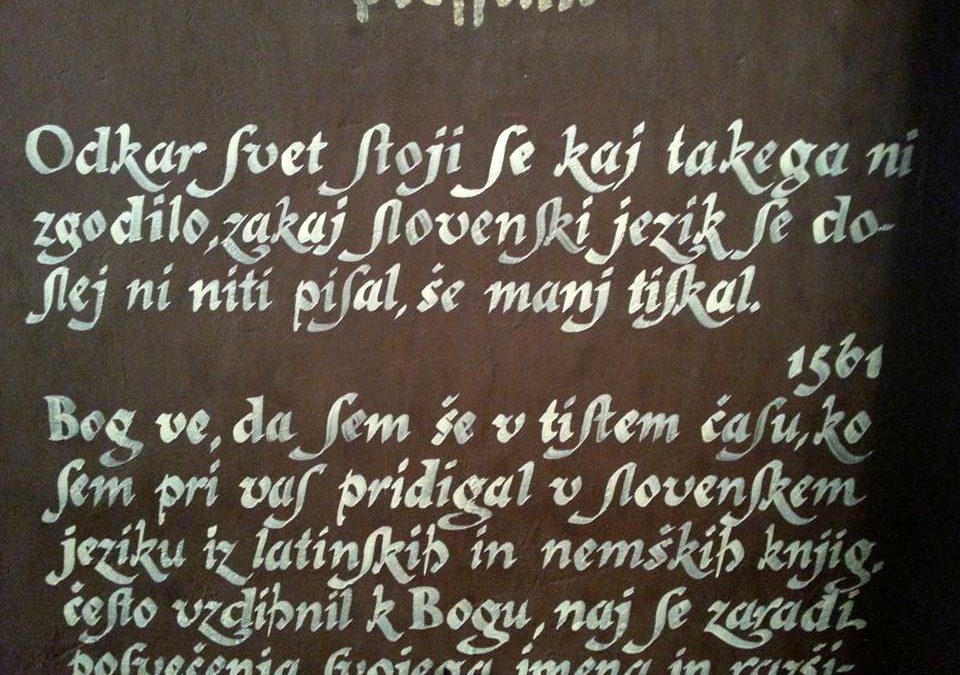 Odkar ſvet ſtoji ſe kaj takega ni
zgodilo, zakaj ſlovenſki jezik ſe do-
ſlej ni niti piſal, še manj tiſkal.
1561
Bog ve, da ſem še v tiſtem čaſu, ko
ſem pri vaſ pridigal v ſlovenſkem
jeziku iz latinſkih in nemških knjig,
čeſto vzdihnil k Bogu, naj ſe zaradi
poſvečenja ſvojega imena in razši-